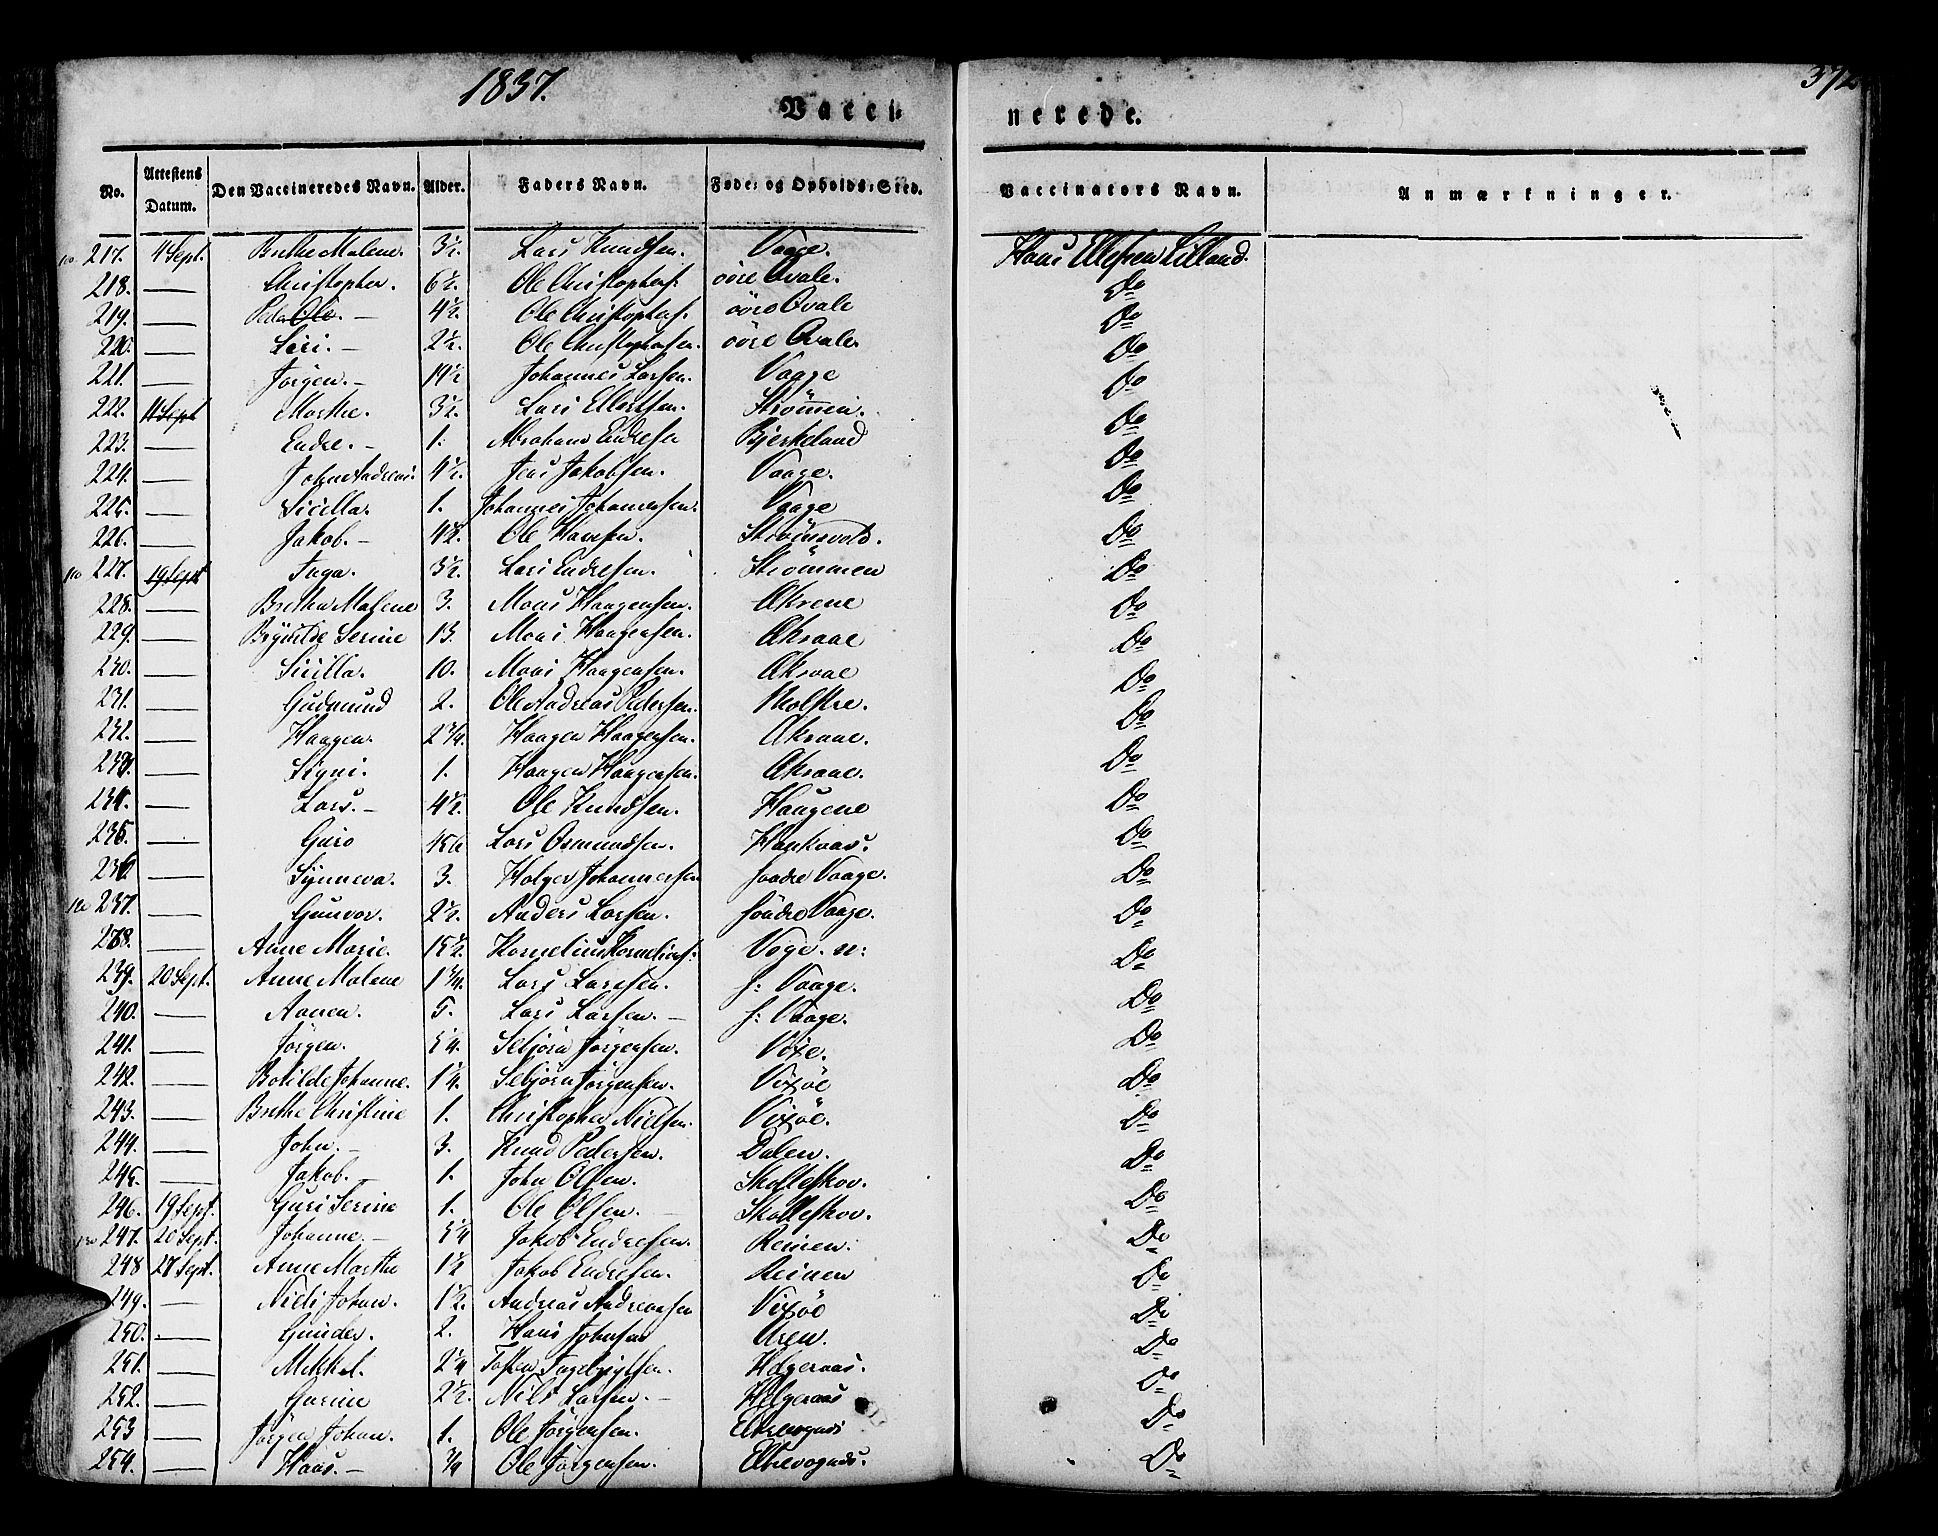 1837. 372
Vacci- nerede.
No. Attestens Datum. Den Vaccineredes Navn. Alder. Faders Navn. Føde- og Opholds-Sted. Vaccinators Navn. Anmærkninger.
217. 11 Sept. Brethe Malene. 3½. Lars Knudsen. Vaage. Hans Ellefsen Lilland.
218. — Christopher. 6½. Ole Christophers. öire Qvale. Do
219. — Peder Ole. — 4½. Ole Christophers. öire Qvale Do
220. — Siri. — 2½. Ole Christophersen. öire Qvale. Do
221. — Jørgen. — 19½ Johannes Larsen. Vaage Do
222. 11 Sept Marthe. 3½. Lars Ellertsen. Strömen. Do
223. — Endre. — 1. Abraham Endresen Bjerkeland Do
224. — John Andreas. 4½. Jens Jakobsen. Vaage. Do
225. — Sicilla. 1. Johannes Johannesen. Vaage Do
226. — Jakob. — 4½. Ole Hansen. Strömsvold. Do
227. 19 Sept Inga. 3½. Lars Endresen. Strömmen Do
228. — Brethe Malene 3. Maas Haagensen. Akrene Do
229. — Brynilde Serine 13. Maas Haagensen. Akraae Do
230. — Sicilla. 10. Maas Haagensen. Akraae Do
231. — Gudmund 2. Ole Andreas Pedersen. Molstre. Do
232. — Haagen. 2¾. Haagen Haagensen. Akraae. Do
233. — Signi. 1. Haagen Haagensen. Akraae. Do
234. — Lars. — 4½. Ole Knudsen. Haugene Do
235. — Guro Lars Osmundsen. Haukaas. Do
236. — Synneva. 3. Holger Johannessen söndre Vaage. Do
237. — Gunvor. 2½. Anders Larsen. söndre Vaage. Do
238. — Anne Marie. 15½ Kornelius Korneliuss. Vage. n: Do
239. 20 Sept. Anne Malene 1¾. Lars Larssen. s: Vaage. Do
240. — Annen. 5. Lars Larsen. — s: Vaage. Do
241. — Jörgen. 5¼. Sebjörn Jörgensen. Vixe. Do
242. — Botilde Johanne. 1¼. Sebjörn Jörgensen. Vixöe Do
243. — Brethe Christine 1. Christopher Nielsen. Vixöe. Do
244. — John. — 3. Knud Pedersen. Dalen. Do
245. — Jakob. — 1. John Olsen. Skolleskov. Do
246. 19 Sept. Guri Serine 1. Ole Olsen. — Skolleskov. Do
247. 20 Sept. Johanne. — 5¼ Jakob Endresen. Reinen. Do
248 27 Sept. Anne Marthe 1½ Jakob Endresen. Reinen Do
249. — Niels Johan. 1½. Andreas Andreassen Vixöe Do
250. — Gunder. 2. Hans Johnsen Uren. Do
251. — Mikkel. 2¼ Tosten Ingebrigtsen. Helgeraas. Do
252. — Gurine 2½. Nils Larsen. — Helgeraas Do
253 — Jörgen Johan. 1. Ole Jörgensen. Eltrevognes Do
254. — Hans. — ¾ Ole Jörgensen. Eltrevognes. Do